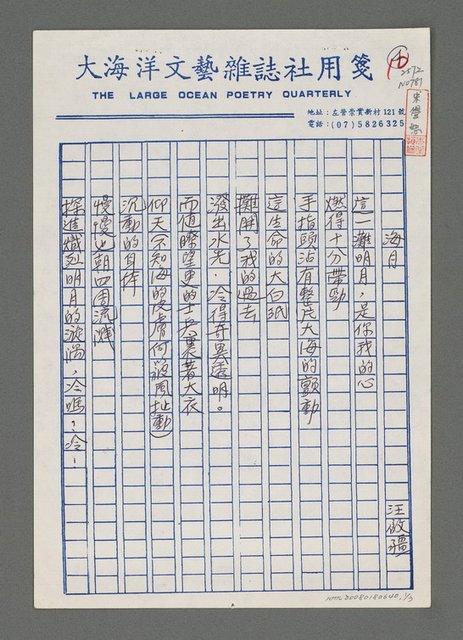 大海洋文藝雜誌社用箋
THE LARGE OCEAN POETRY QUARTERLY
地址：左營崇實新村121號
電話：(07)5826325
海月
汪啟疆
這一灘明月，是你我的心
燃得十分帶勁
手指頭沾有整片大海的顫動
這生命的大白紙
攤開了我的過去
潑出水光．冷得奇異透明。
而值瞭望更的士兵裹著大衣
仰天不知海的皮膚何被風扯動）
沉動的身体
慢慢也朝四周流濺
探進熾烈明月的漩渦，冷嗎？冷．